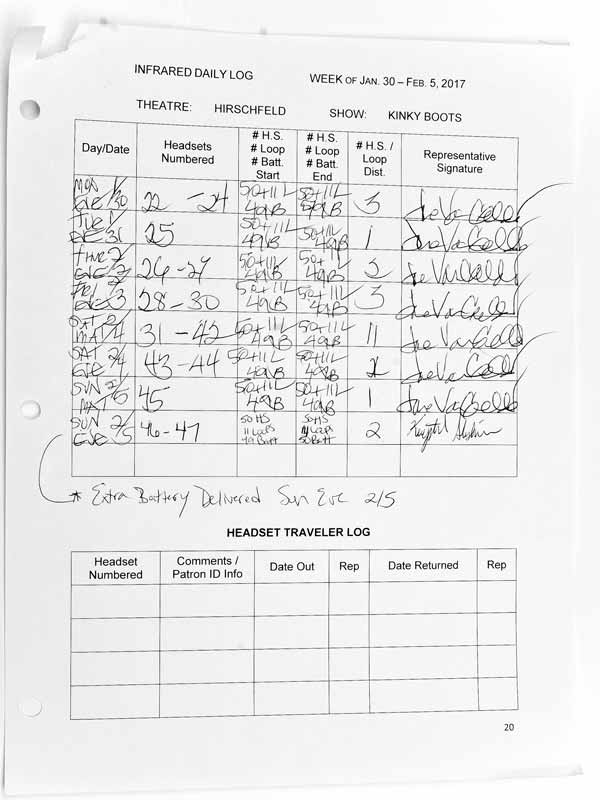 INFRARED DAILY LOG WEEK OF JAN. 30 – FEB. 5, 2017
THEATRE: HIRSCHFELD SHOW: KINKY BOOTS
Day/Date Headsets Numbered # H.S. # Loop # Batt. Start # H.S. # Loop # Batt. End # H.S. / Loop Dist. Representative Signature
MON EVE 1/30 22 - 24 50+11L 49B 50+11L 49B 3
TUE EVE 1/31 25 50+11L 49B 50+11L 49B 1
THUR EVE 2/2 50+11L 49B 50+11L 49B
FRI EVE 2/3 28 - 30 50+11L 49B 50+11L 49B 3
SAT MAT 2/4 31 - 42 50+11L 49B 50+11L 49B 11
SAT EVE 2/4 43 - 44 50+11L 49B 50+11L 49B 2
SUN MAT 2/5 45 50+11L 49B 50+11L 49B 1
SUN EVE 2/5 46 - 47 50 HS 11 Loops 49 Batt 50 HS 11 Loops 50 Batt 2
* Extra Battery Delivered Sun Eve 2/5
HEADSET TRAVELER LOG
Headset Numbered Comments / Patron ID Info Date Out Rep Date Returned Rep
20